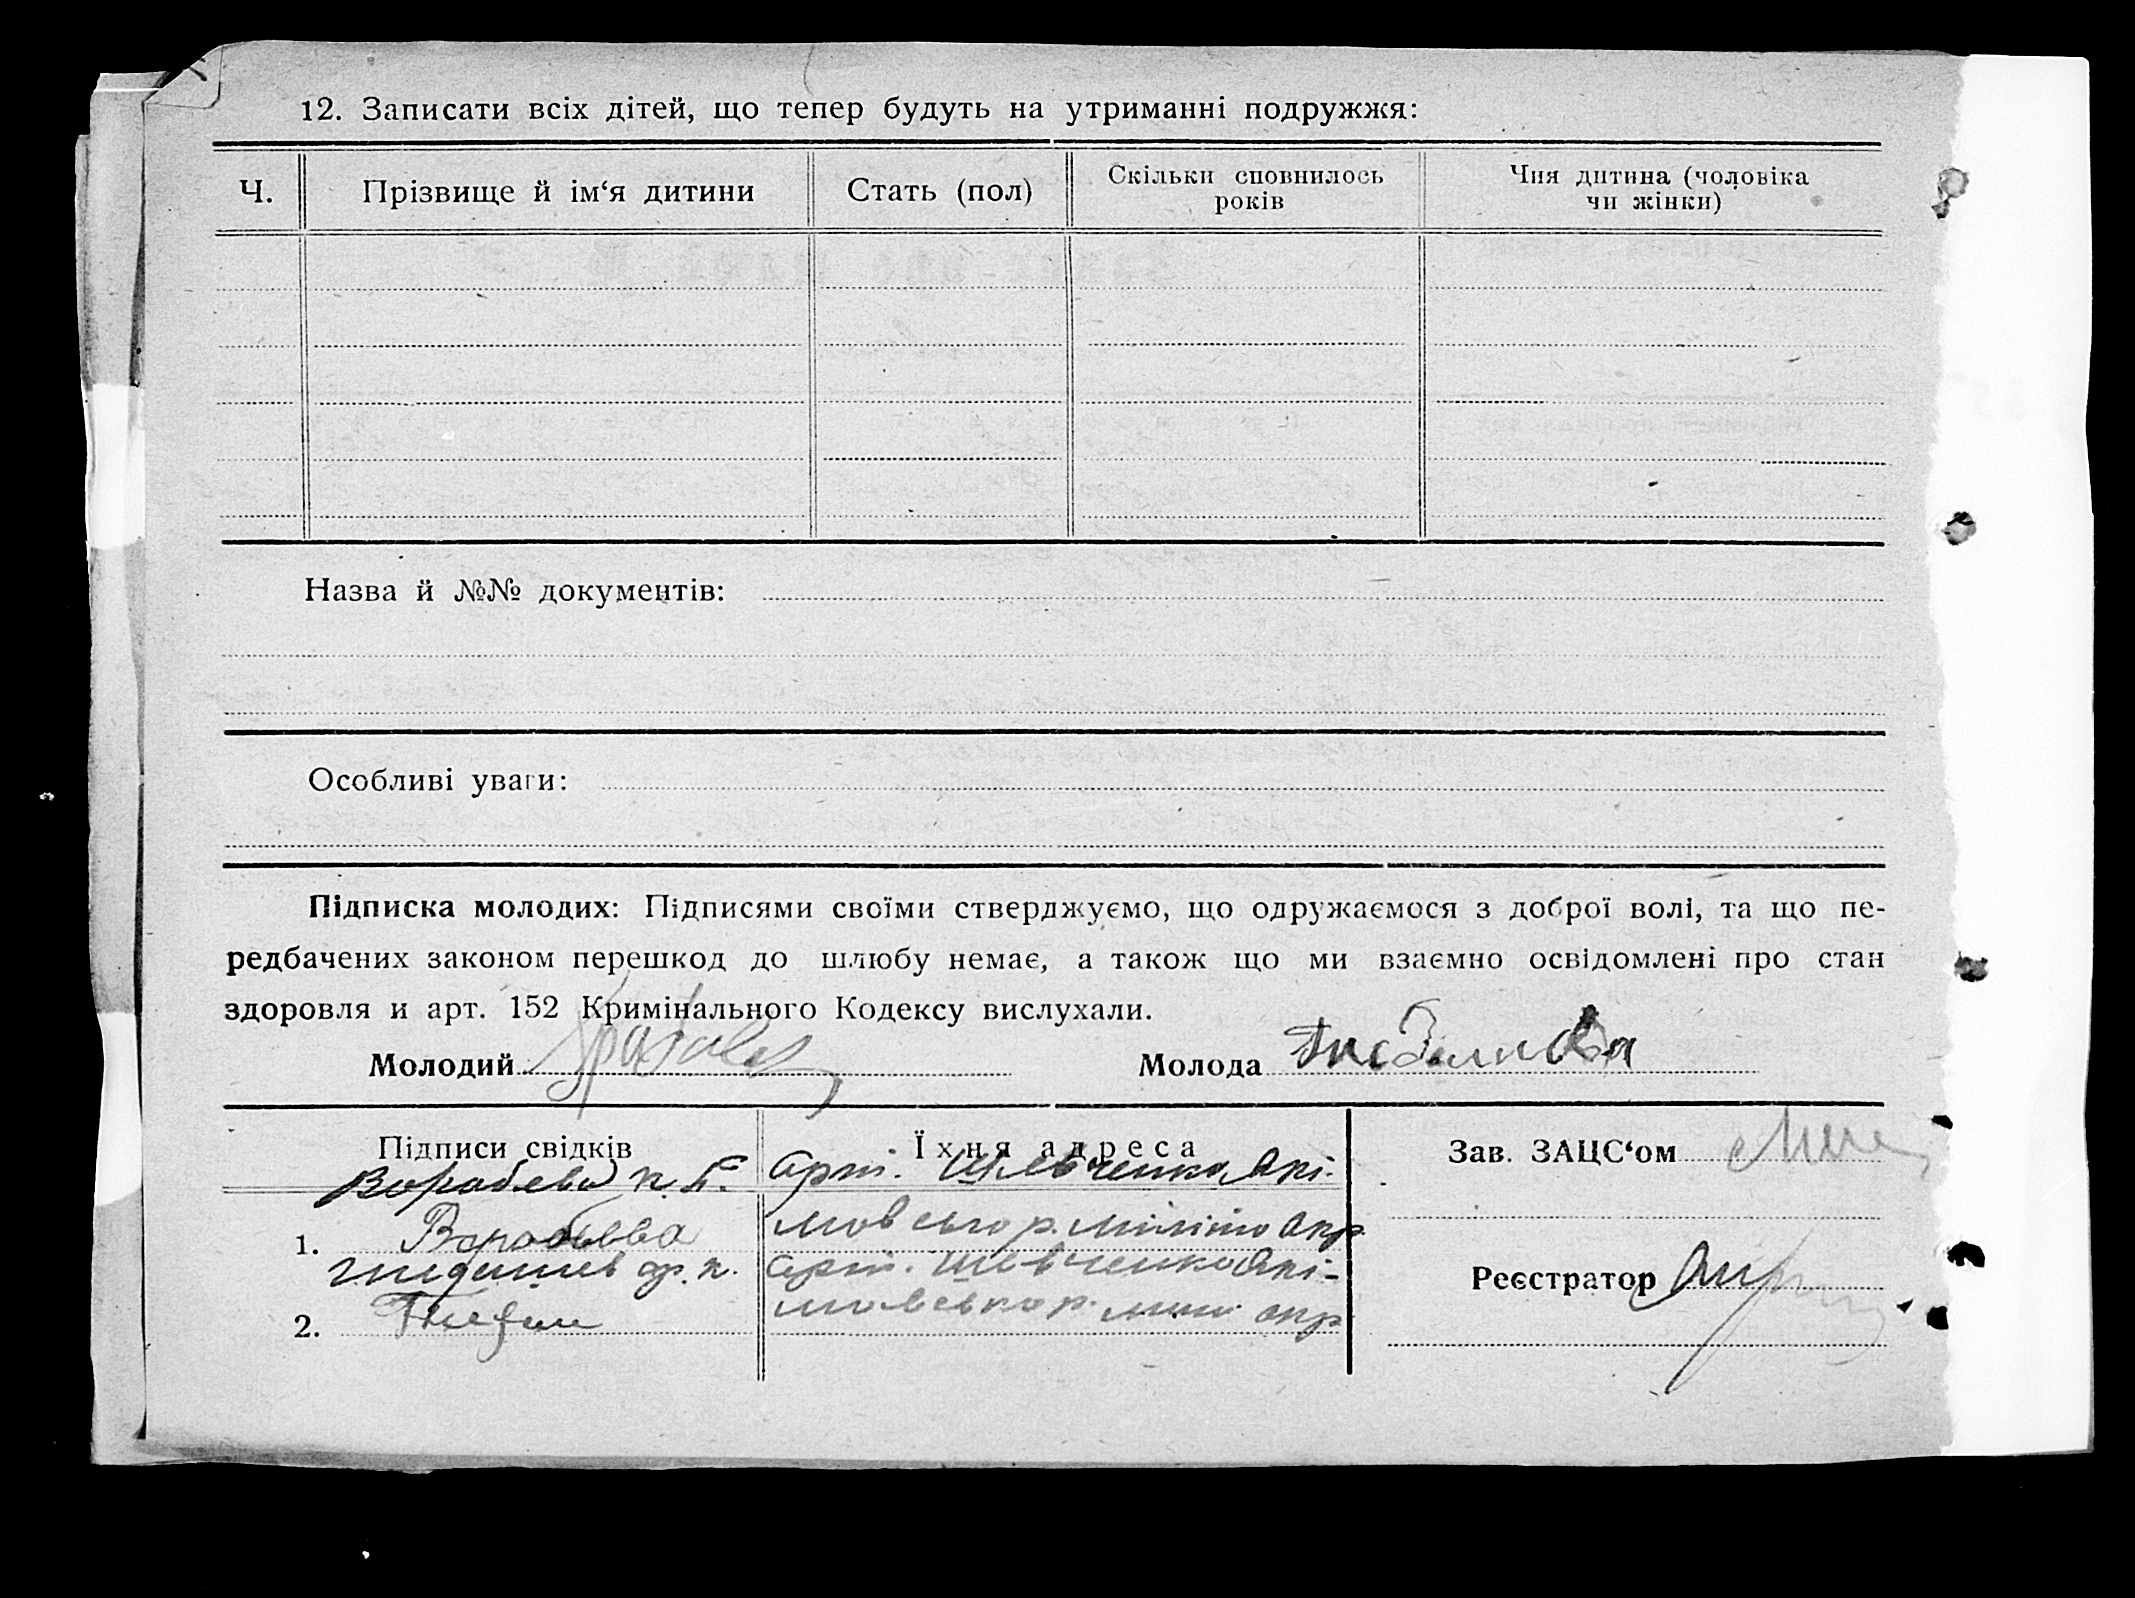 12. Записати всіх дітей, що тепер будуть на утриманні подружжя:
Ч.
Прізвище й ім‘я дитини
Стать (пол)
Скільки сповнилось
років
Чия дитина (чоловіка
чи жінки)
Назва й №№ документів:
Особливі уваги:
Підписка молодих: Підписями своїми стверджуємо, що одружаємося з доброї волі, та що пе-
редбачених законом перешкод до шлюбу немає, а також що ми взаємно освідомлені про стан
здоровля и арт. 152 Кримінального Кодексу вислухали.
Молодий
Молода
Підписи свідків
Їхня адреса
Зав. ЗАЦС‘ом
Воробьева
арт. Шевченка Які-
1. Воробьева
мовського р. Меліто окр
арт. Шевченко Які-
2.
Реєстратор